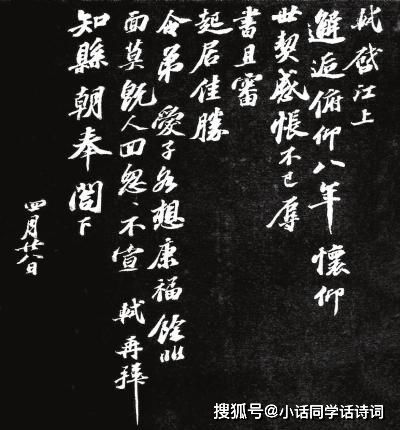 軾啓江上
邂逅俯仰八年 懷仰
世契感悵不已辱
書且審
起居佳勝
令弟愛子各想康福餘非
面莫既人回忽〻不宣 軾再拜
知縣朝奉閣下
四月廿八日
搜狐号@小话同学话诗词